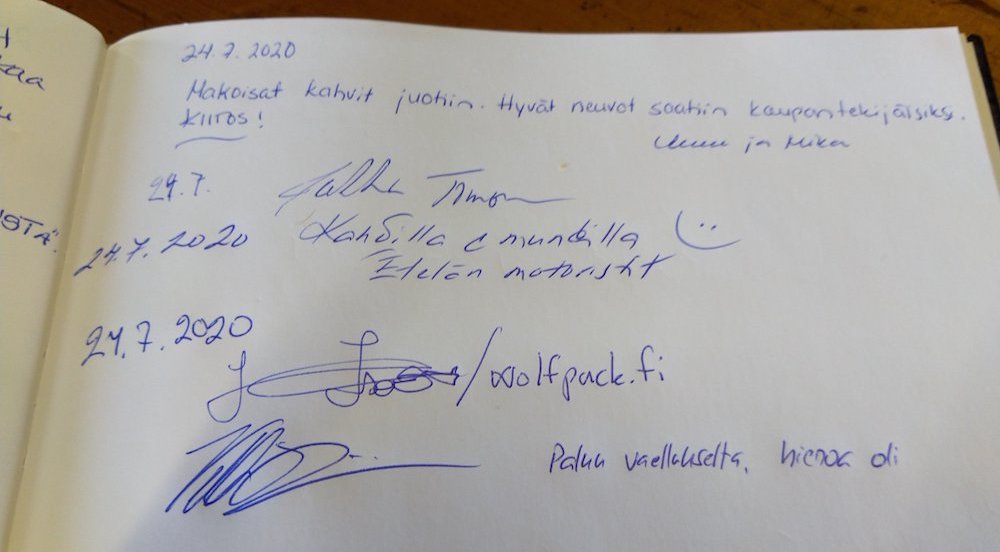 aa
STA".
24.7.2020
Makoisat kahvit juotiin. Hyvät neuvot saatiin kaupantekijäisiksi.
KIITOS!
ja Mika
24.7.
Timo
24.7.2020
Kahvilla munkilla
Etelän motoristit
24.7.2020
/wolfpack.fi
Paluu vaellukselta, hienoa oli